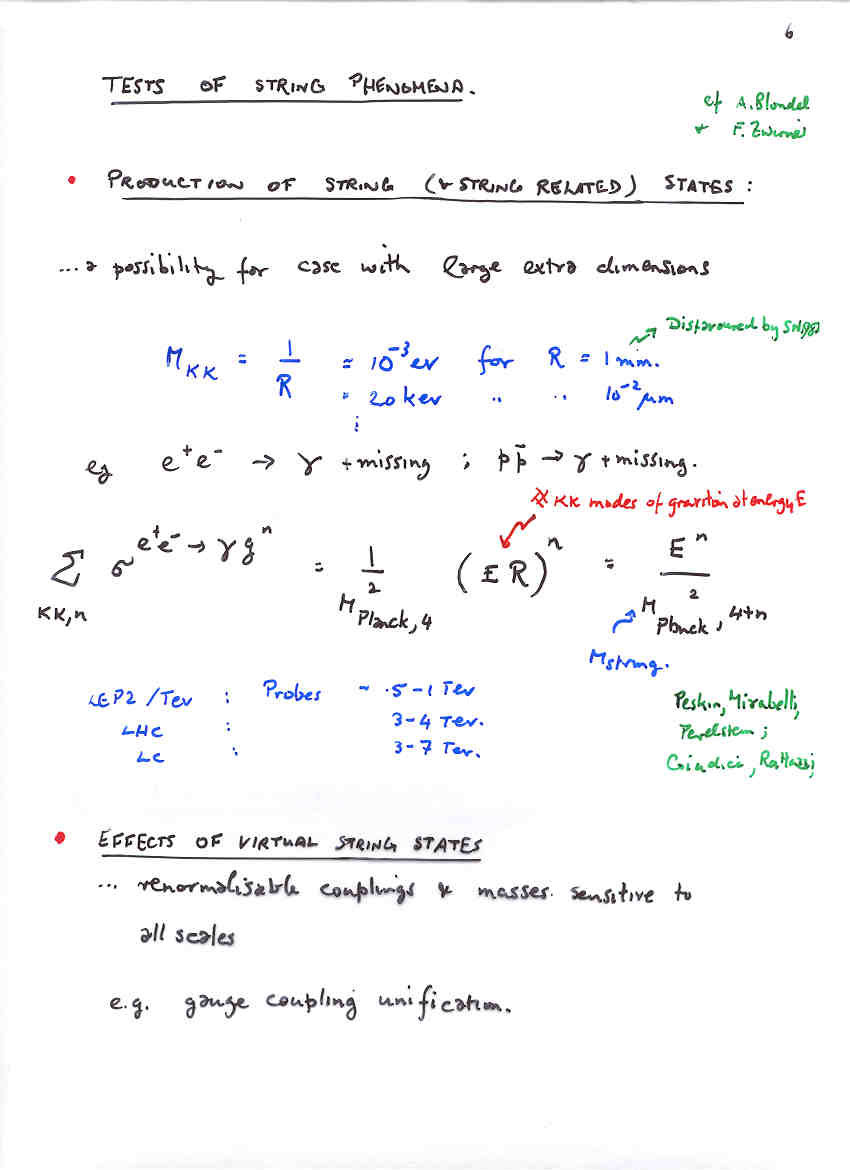 6
TESTS OF STRING PHENOMENA.
cf A. Blondel
+ F. Zwirner
• PRODUCTION OF STRING (& STRING RELATED) STATES :
... a possibility for case with large extra dimensions
Disfavoured by SN1987
M_KK = 1/R = 10^-3 ev for R = 1 mm.
= 20 kev " " 10^-2 μm
⋮
eg e^+e^- → γ + missing ; p p̄ → γ + missing.
# KK modes of graviton at energy E
Σ_KK,n σ^{e^+e^- → γ g^n} = 1/M^2_Planck,4 (ER)^n = E^n/M^2_Planck,4+n
Mstring.
LEP2 / Tev : Probes ~ .5 - 1 Tev
LHC : 3 - 4 Tev.
LC : 3 - 7 Tev.
Peskin, Mirabelli,
Perelstein ;
Giudici, Rattazzi;
• EFFECTS OF VIRTUAL STRING STATES
... renormalisable couplings & masses. sensitive to
all scales
e.g. gauge coupling unification.